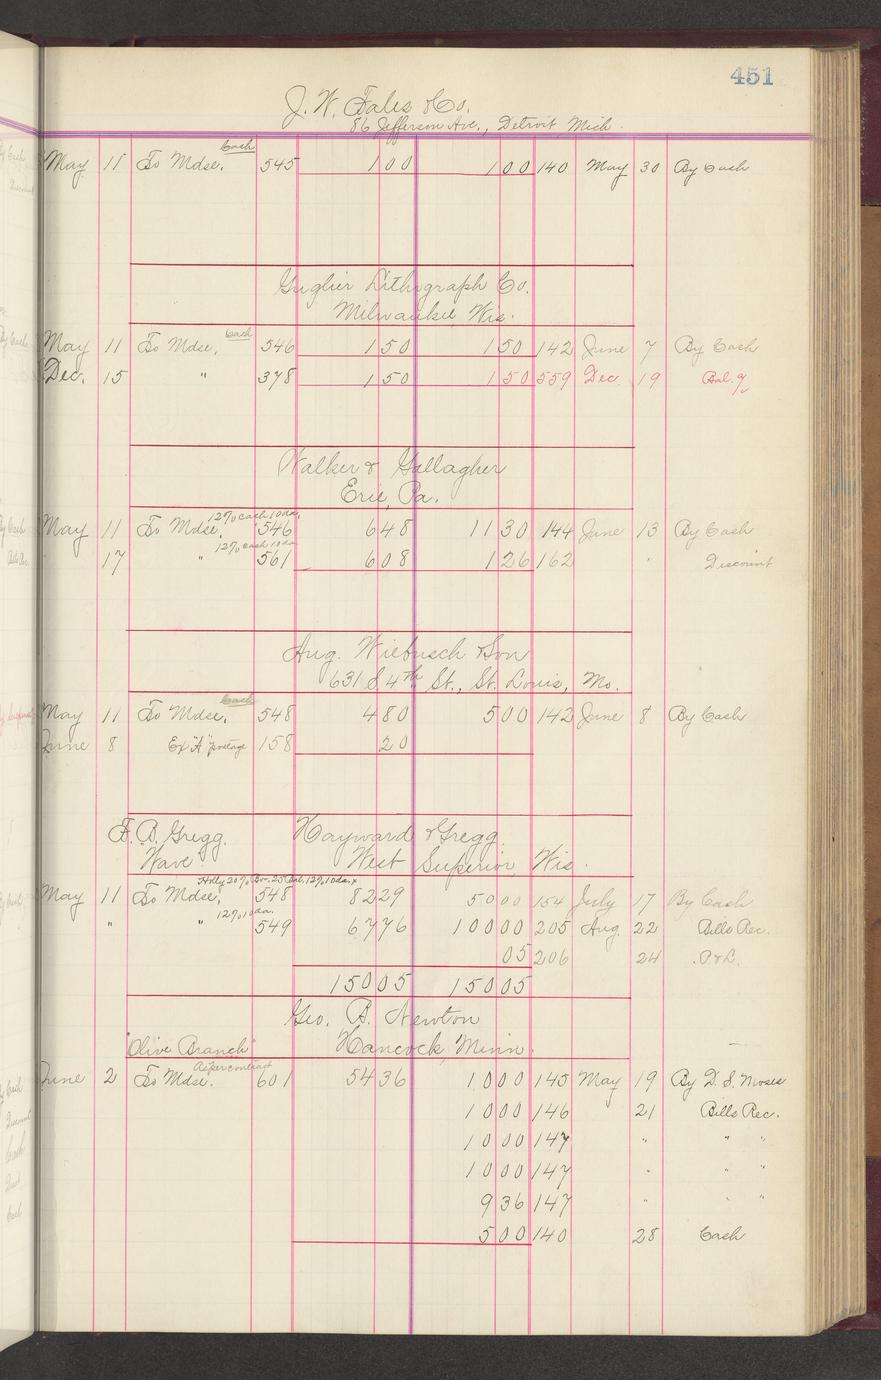 451
J. W. Fales & Co.
86 Jefferson Ave., Detroit Mich.
Cash
May 11 To Mdse. 545 1 00 1 00 140 May 30 By Cash
Gugler Lithograph Co.
Milwaukee, Wis.
Cash
May 11 To Mdse. 546 1 50 1 50 142 June 7 By Cash
Dec. 15 " 378 1 50 1 50 559 Dec. 19 Bal.
Walker & Gallagher
Erie, Pa.
12% cash 10 da.
May 11 To Mdse. 546 6 48 11 30 144 June 13 By Cash
12% cash 10 da
17 " 561 6 08 1 26 162 " Discount
Aug. Wiebusch & Son
631 S. 4th St., St. Louis, Mo.
Cash
May 11 To Mdse. 548 4 80 5 00 142 June 8 By Cash
June 8 Ex "A" postage 158 20
F. B. Gregg. Hayward & Gregg.
"Wave" West Superior, Wis.
Holly 20% Bo-25 Bal. 12% 10 da. x
May 11 To Mdse. 548 82 29 50 00 154 July 17 By Cash
12% 10 da.
" " 549 67 76 100 00 205 Aug. 22 Bills Rec.
05 206 24 P. & L.
150 05 150 05
Geo. B. Newton
"Olive Branch" Hancock, Minn.
As per contract
June 2 To Mdse. 601 54 36 10 00 145 May 19 By D. S. Moses
10 00 146 21 Bills Rec.
10 00 147 " " "
10 00 147 " " "
9 36 147 " " "
5 00 140 28 Cash